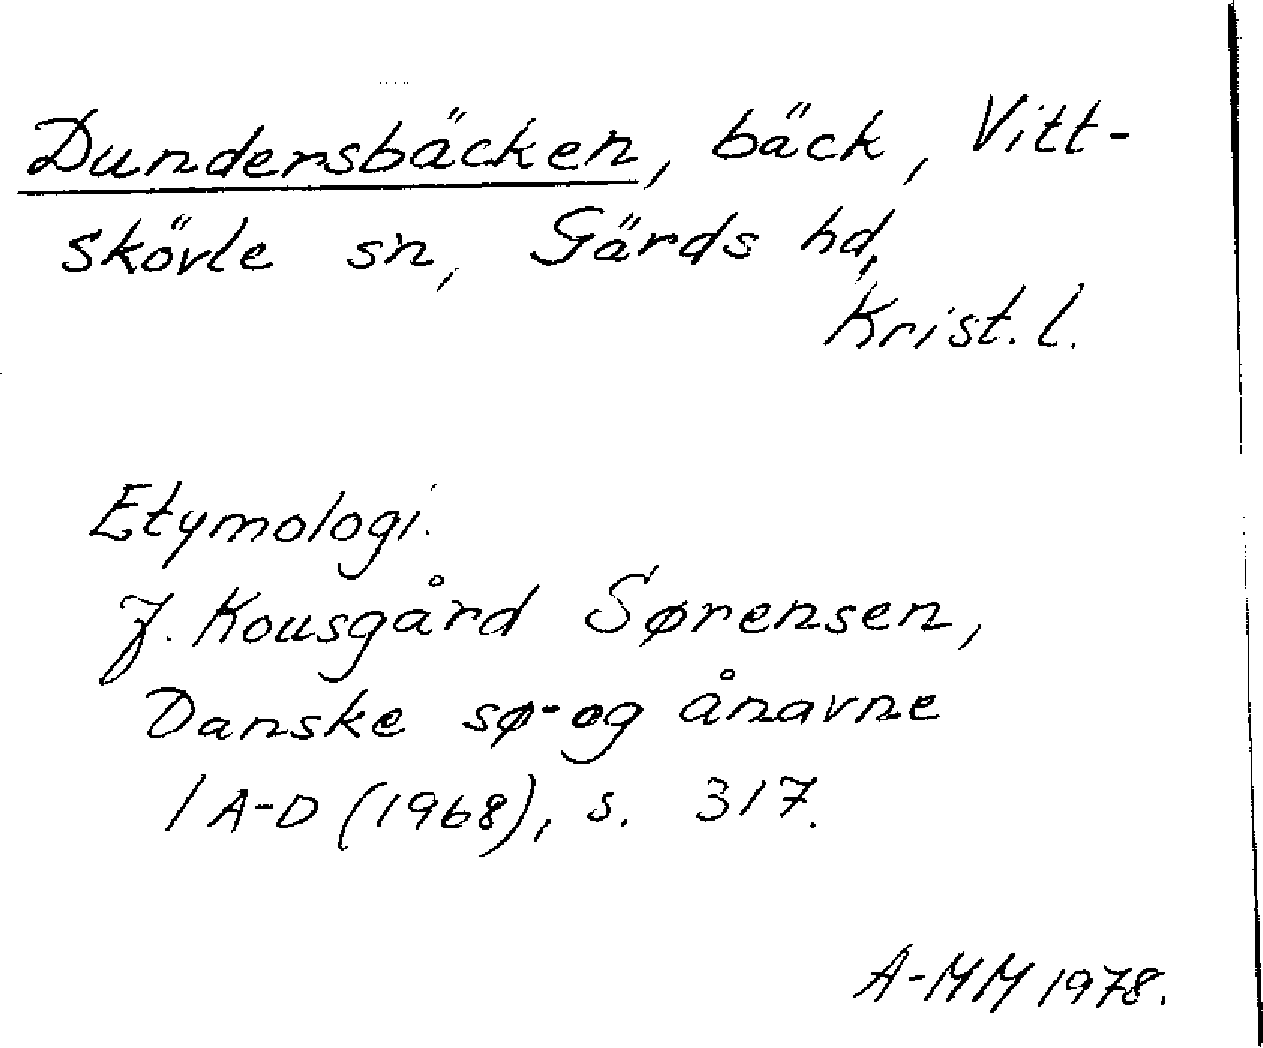 Dundersbäcken, bäck, Vitt-
skövle sn, Gärds hd,
Krist. l.
Etymologi.
J. Kousgård Sørensen,
Danske sø- og ånavne
1 A-D (1968), s. 317.
A-MM 1978.